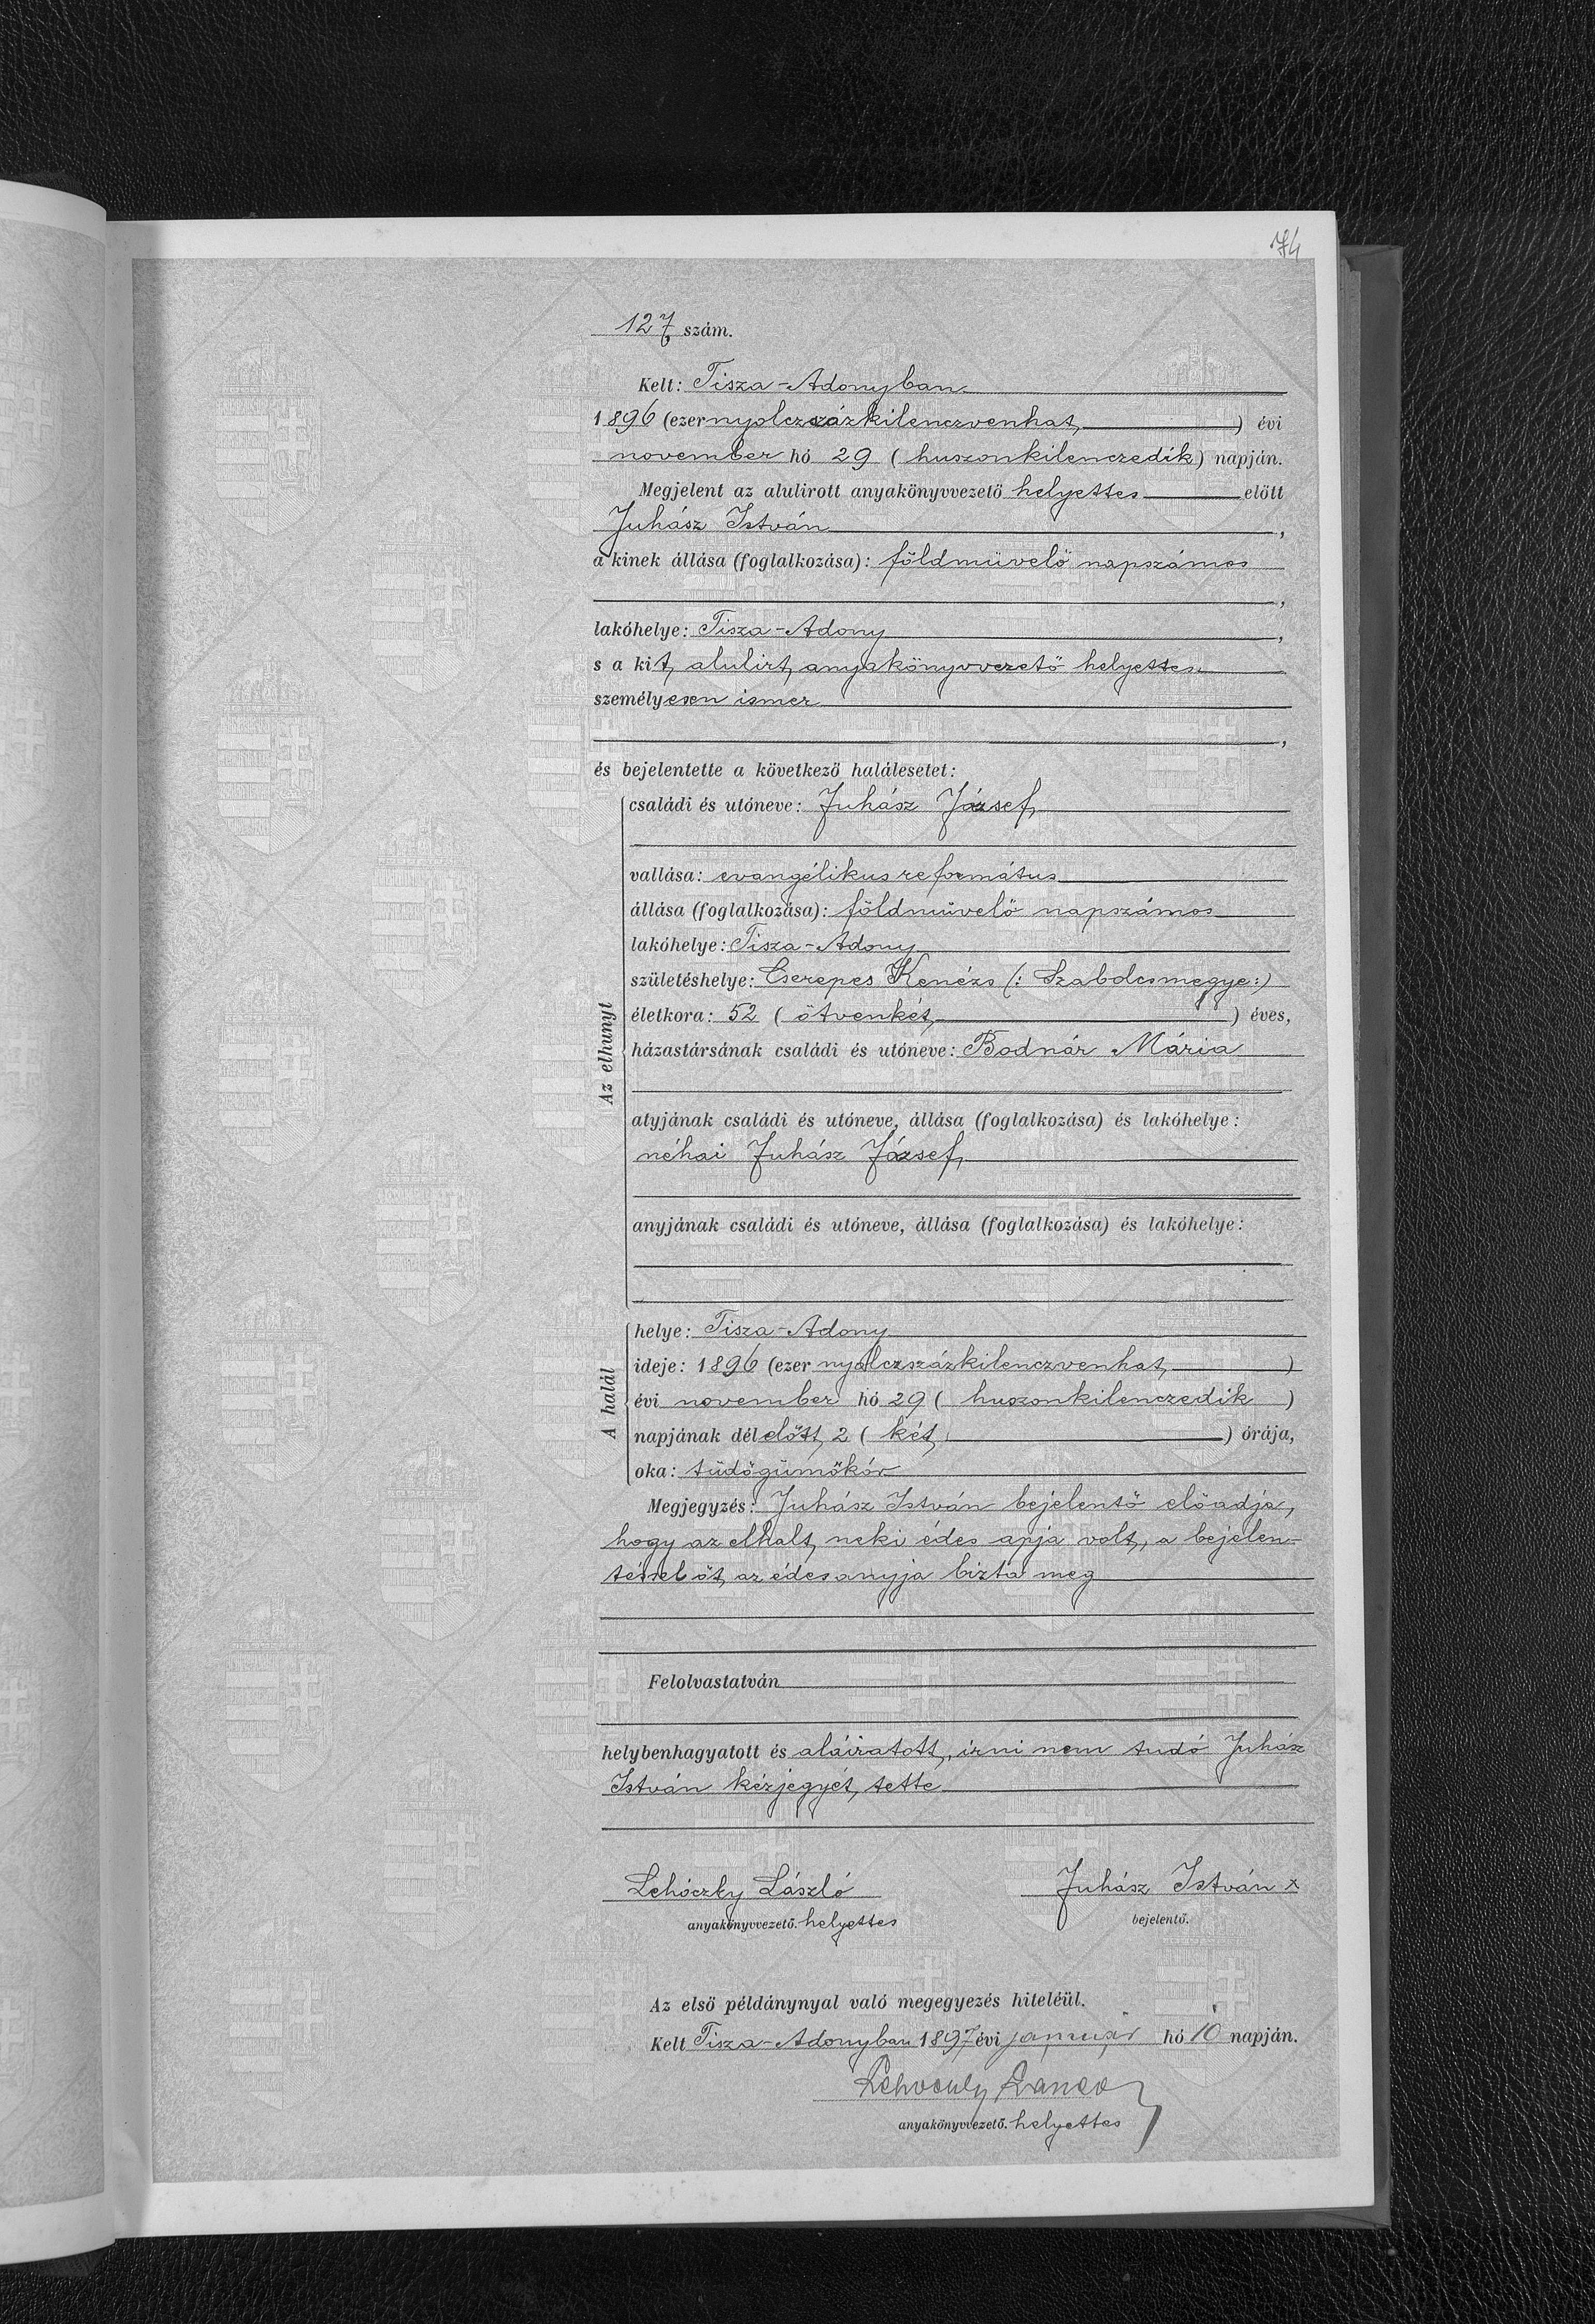 74
127 szám.
Kelt: Tisza-Adonyban
1896 (ezernyolczszázkilenczvenhat) évi
november hó 29 (huszonkilenczedik) napján.
Megjelent az alulirott anyakönyvvezető helyettes előtt
Juhász István,
a kinek állása (foglalkozása): földmüvelő napszámos
,
lakóhelye: Tisza-Adony,
s a kit, alulirt, anyakönyvvezető helyettes
személyesen ismer
,
és bejelentette a következő halálesetet:
Az elhunyt
családi és utóneve: Juhász József
vallása: evangélikus református
állása (foglalkozása): földmüvelő napszámos
lakóhelye: Tisza-Adony
születéshelye: Cserepes Kenézs (: Szabolcsmegye:)
életkora: 52 (ötvenkét) éves,
házastársának családi és utóneve: Bodnár Mária
atyjának családi és utóneve, állása (foglalkozása) és lakóhelye:
néhai Juhász József
anyjának családi és utóneve, állása (foglalkozása) és lakóhelye:
A halál
helye: Tisza-Adony
ideje: 1896 (ezer nyolczszázkilenczvenhat)
évi november hó 29 (huszonkilenczedik)
napjának délelőtt 2 (két) órája,
oka: tüdőgümőkór
Megjegyzés: Juhász István bejelentő előadja,
hogy az elhalt, neki édes apja volt, a bejelen-
téssel őt, az édesanyja bizta meg
Felolvastatván
helybenhagyatott és aláiratott, irni nem tudó Juhász
István kézjegyét, tette
Lehóczky László
anyakönyvvezető. helyettes
Juhász István x
bejelentő.
Az első példánynyal való megegyezés hiteléül.
Kelt Tisza-Adonyban 1897 évi január hó 10 napján.
anyakönyvvezető. helyettes